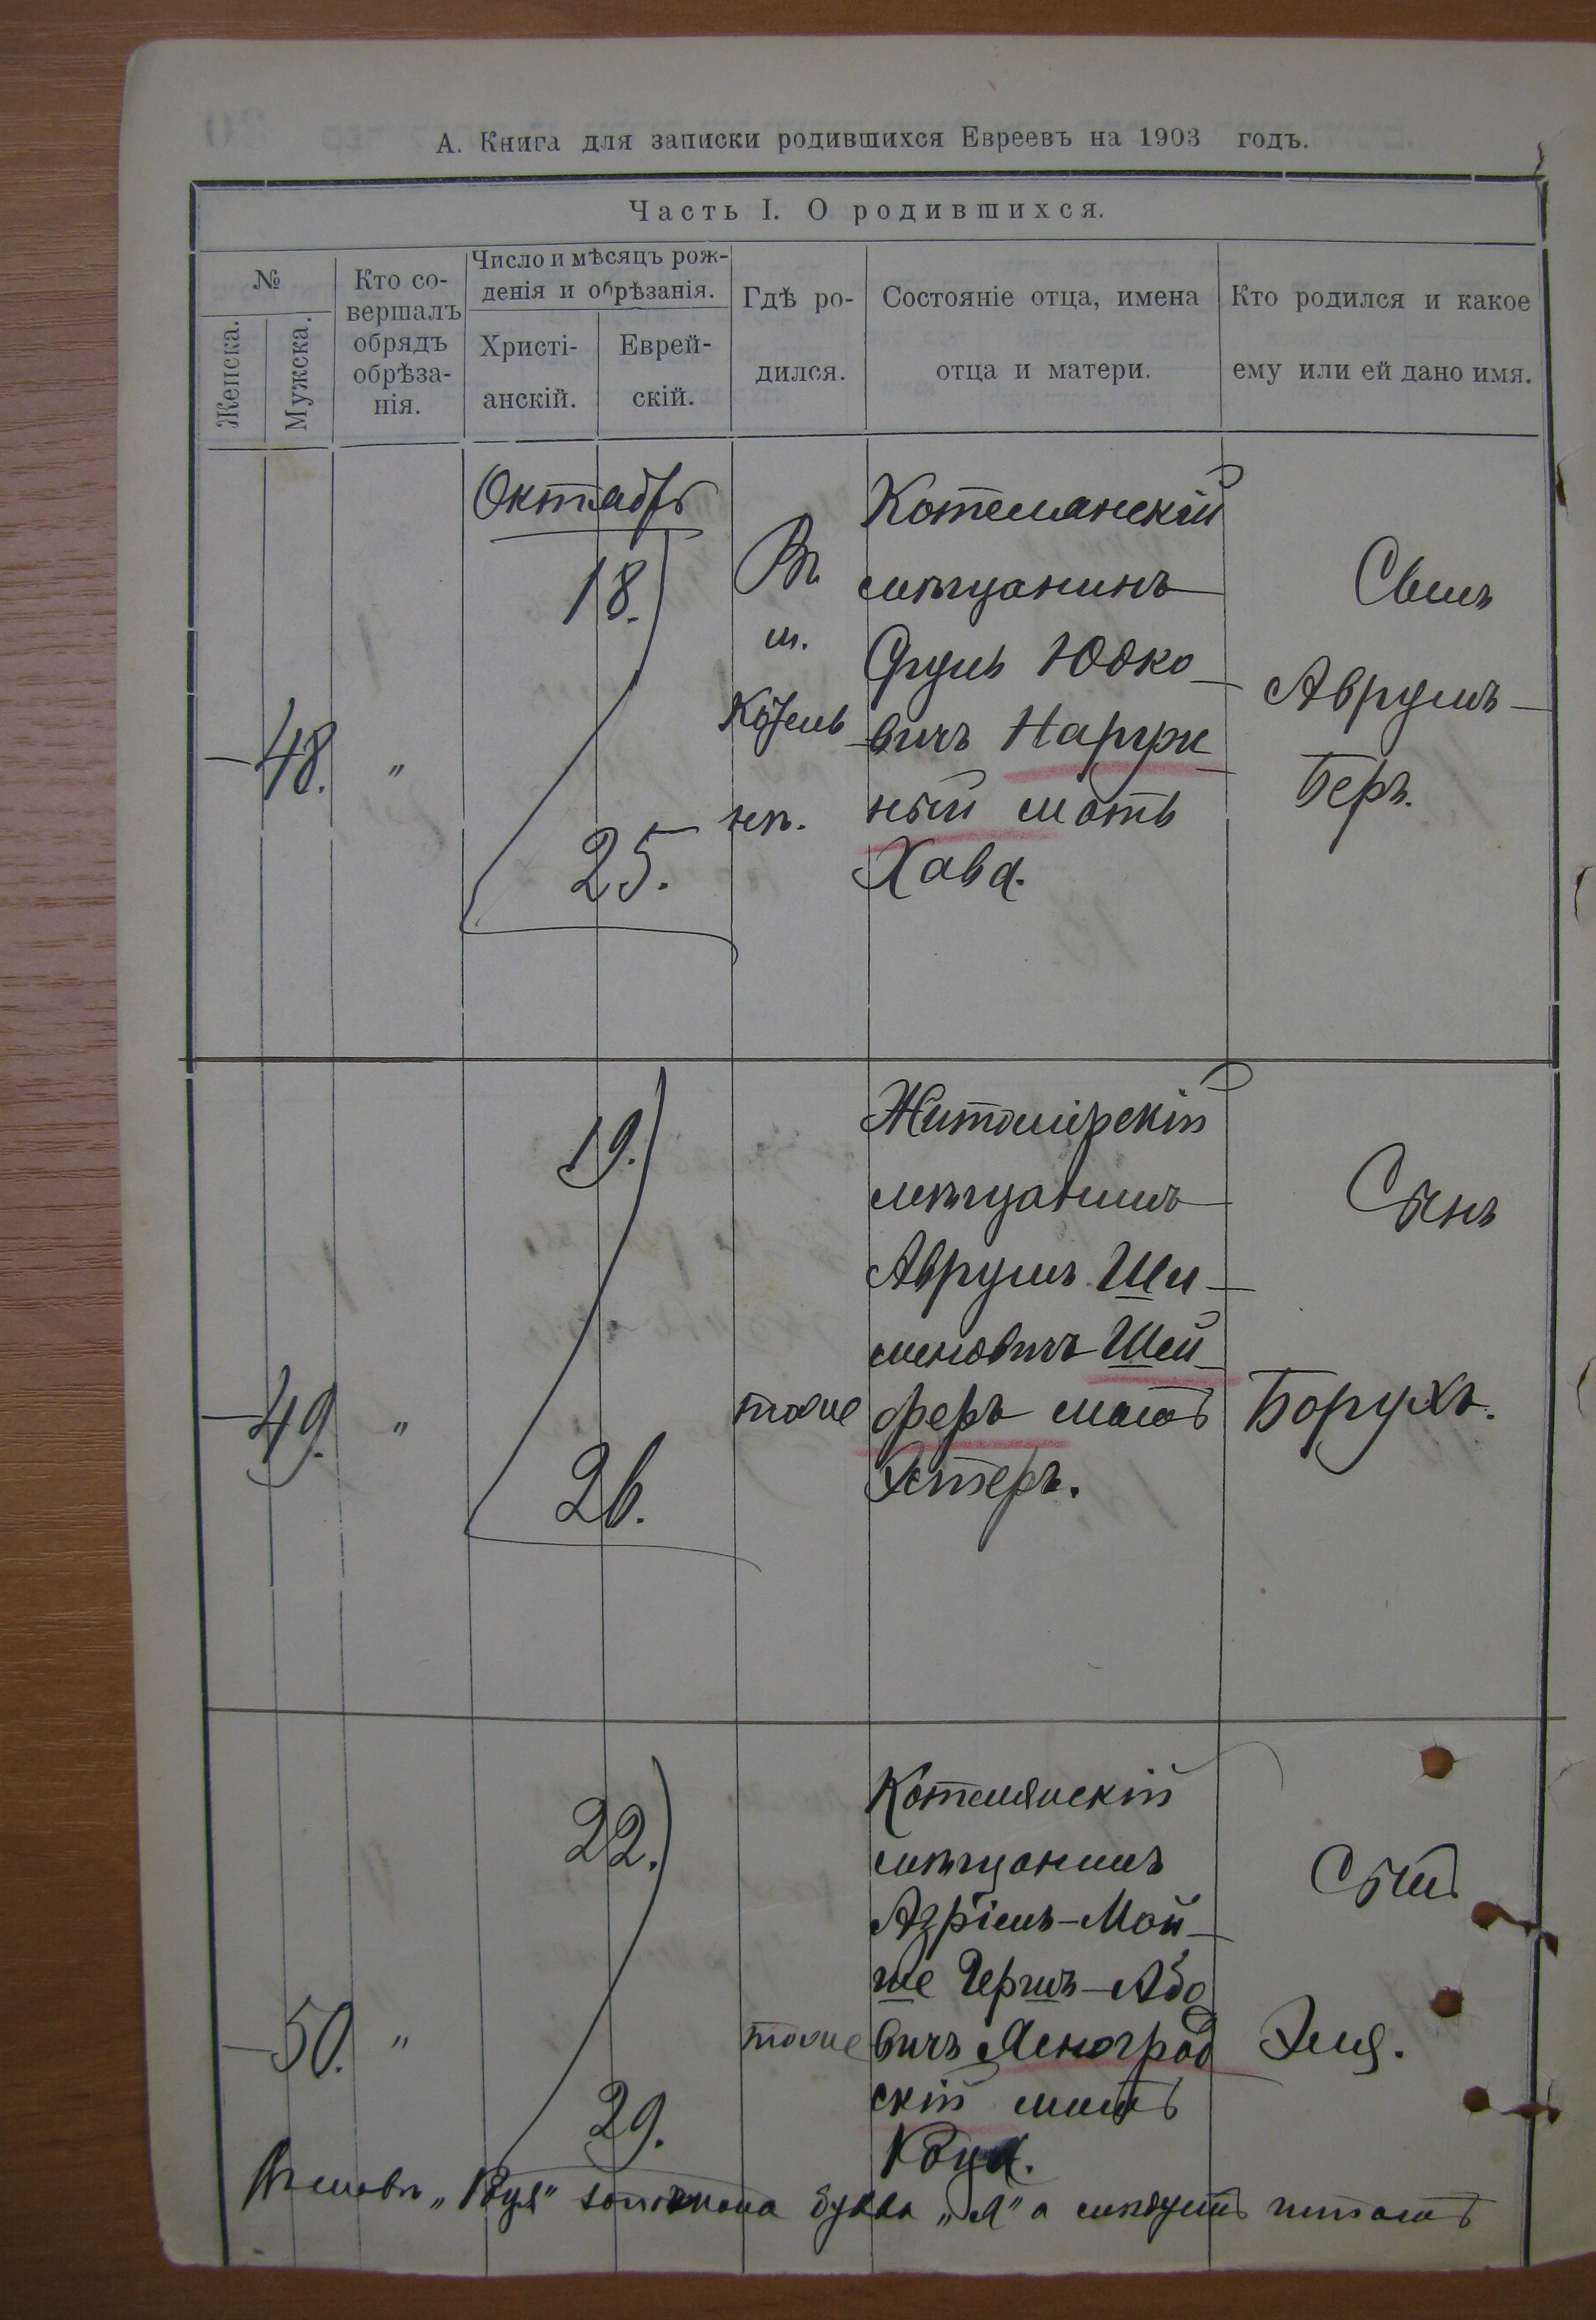 А. Книга для записки родившихся Евреевъ на 1903 годъ.
Часть I. О родившихся.
№
Женска.
Мужска.
Кто со-
вершалъ
обрядъ
обрѣза-
нія.
Число и мѣсяцъ рож-
денія и обрѣзанія.
Христі-
анскій.
Еврей-
скій.
Гдѣ ро-
дился.
Состояніе отца, имена
отца и матери.
Кто родился и какое
ему или ей дано имя.
Октябрь
48.
"
18.
25.
Въ
м.
нѣ.
Котелянскій
мѣщанинъ
Юдко-
вичъ
ный мать
Хава.
Сынъ
Аврумъ-
Беръ.
49.
"
19.
26.
тоже
Житомірскій
мѣщанинъ
Аврумъ Ши-
меновичъ Шей-
феръ мать
Эстеръ.
Сынъ
Борухъ.
50.
"
22.
29.
тоже
Котелянскій
мѣщанинъ
Азріель-Мой-
ше Гершъ-Або
вичъ Ясноград
скій мать
Сынъ
Эля.
буква „Я" а слѣдуетъ читать